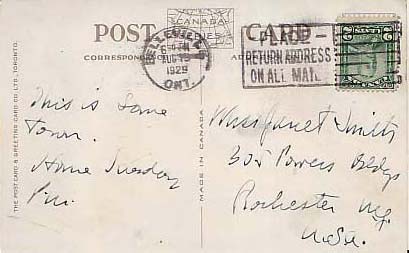 POST CARD
CANADA
CORRESPONDENCE
BELLEVILLE
AUG 13
1929
ONT.
PLACE
RETURN ADDRESS
ON ALL MAIL
This is Some
Town.
Home Tuesday
P.M.
Miss Janet Smith
305 Powers Bldg
Rochester N.Y.
U.S.A.
MADE IN CANADA
THE POST CARD & GREETING CARD CO. LTD., TORONTO.